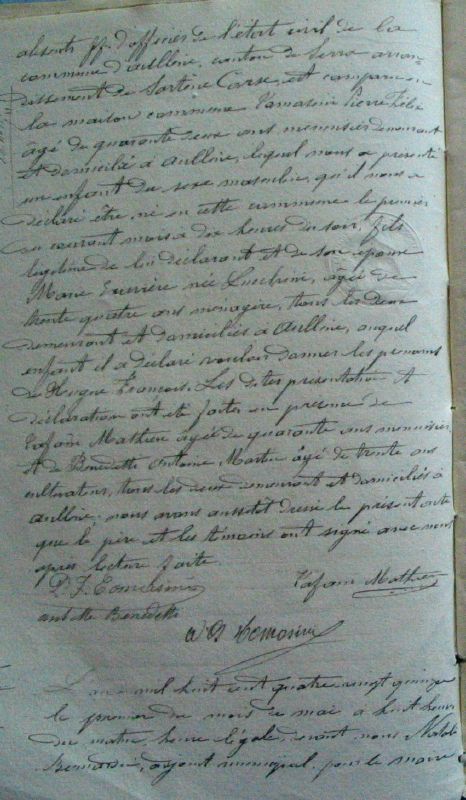 absents ff. d'officier de l'état civil de la
commune d'Aullène, canton de Serra arron
dissement de Sartène Corse, est comparu en
la maison commune Tomasini Pierre Félix
âgé de quarante deux ans menuisier demeurant
et domicilié à Aullène, lequel nous a présenté
un enfant du sexe masculin, qu'il nous a
déclaré être né en cette commune le premier
du courant mois à dix heures du soir, fils
légitime de lui déclarant et de son épouse
Marie née Lucchini, âgée de
trente quatre ans ménagère, tous les deux
demeurant et domiciliés à Aullène, auquel
enfant il a déclaré vouloir donner les prénoms
de François. Les dites présentation et
déclaration ont été faites en présence de
Mathieu âgé de quarante ans menuisier
et de Benedetti Antoine Martin âgé de trente ans
cultivateur, tous les deux demeurant et domiciliés à
Aullène. nous avons aussitôt dressé le présent acte
que le père et les témoins ont signé avec nous
après lecture faite.
P. F. Tomasini Mathieu
ant Mt Benedetti
Tomasini
L'an mil huit cent quatre vingt quinze
le premier du mois de mai à huit heures
du matin heure légale, devant nous Natali
adjoint municipal, pour le maire